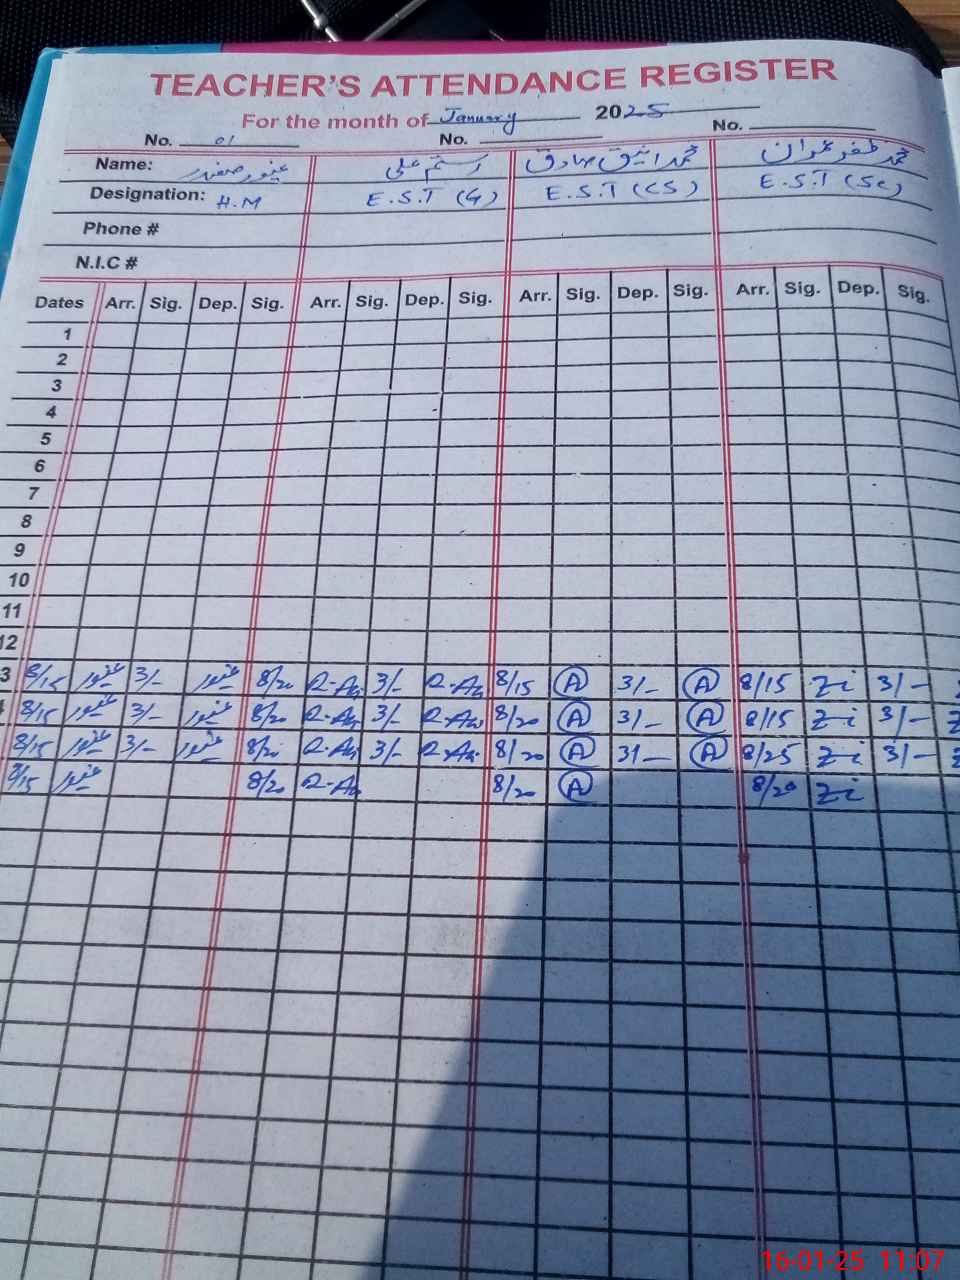 TEACHER'S ATTENDANCE REGISTER
For the month of January 2025
No. 01 No. No.
Name: غیور صفدر رستم علی محمد صادق محمد ظفر عمران
Designation: H.M E.S.T (G) E.S.T (CS) E.S.T (Sc)
Phone #
N.I.C #
Dates Arr. Sig. Dep. Sig. Arr. Sig. Dep. Sig. Arr. Sig. Dep. Sig. Arr. Sig. Dep. Sig.
1
2
3
4
5
6
7
8
9
10
11
12
3 8/15 غیور 3/- غیور 8/20 R-Ali 3/- R-Ali 8/15 A 3/- A 8/15 Zi 3/-
8/15 غیور 3/- غیور 8/20 R-Ali 3/- R-Ali 8/20 A 3/- A 8/15 Zi 3/-
8/15 غیور 3/- غیور 8/20 R-Ali 3/- R-Ali 8/20 A 3/- A 8/25 Zi 3/-
8/15 غیور 8/20 R-Ali 8/20 A 8/20 Zi
16-01-25 11:07